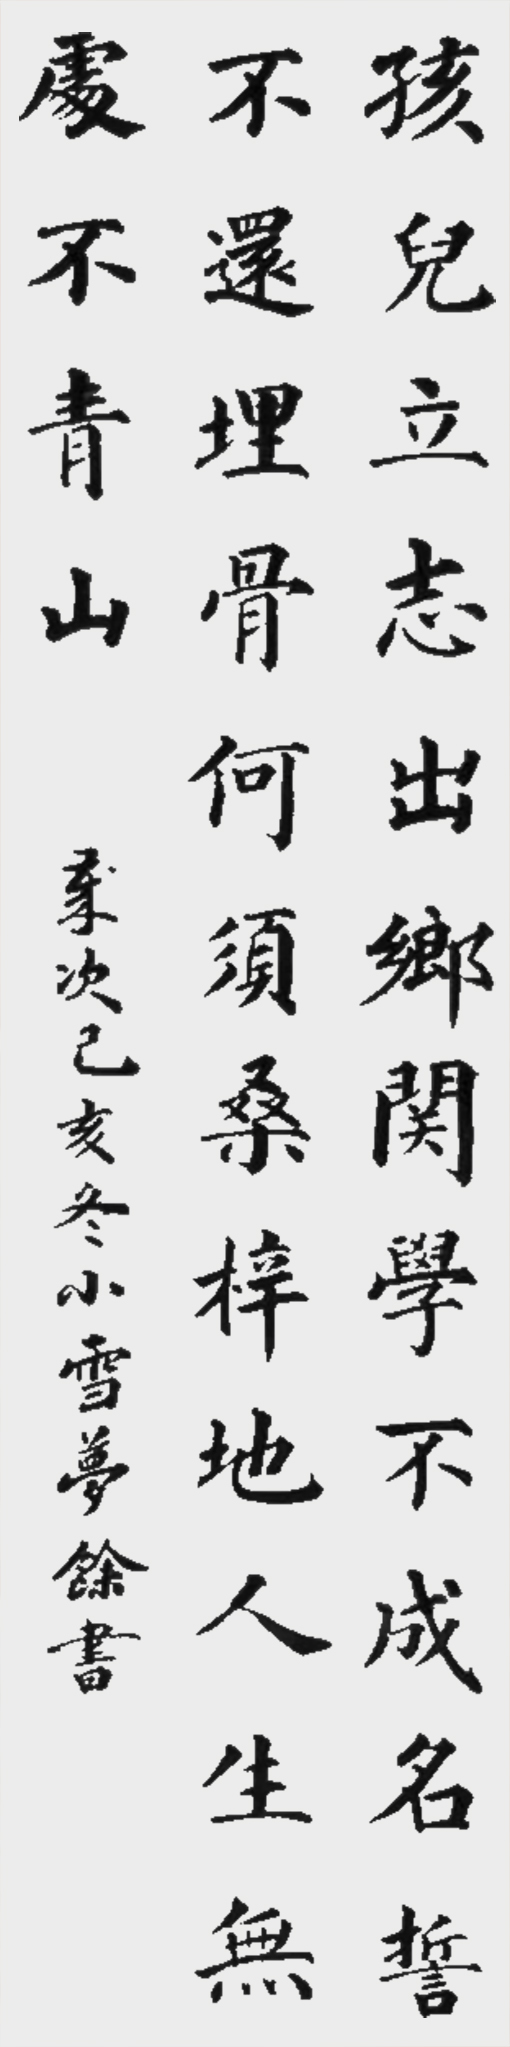 孩兒立志出鄉関學不成名誓
不還埋骨何須桑梓地人生無
處不青山
歲次己亥冬小雪夢餘書